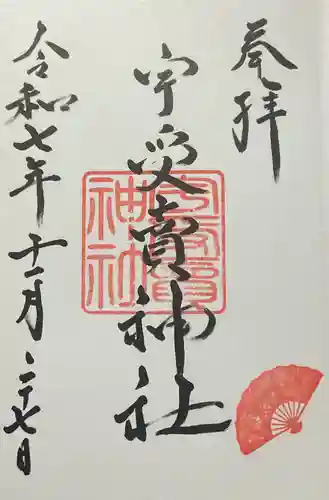 奉拝
宇受賣神社
宇受賣神社
令和七年十一月二十七日